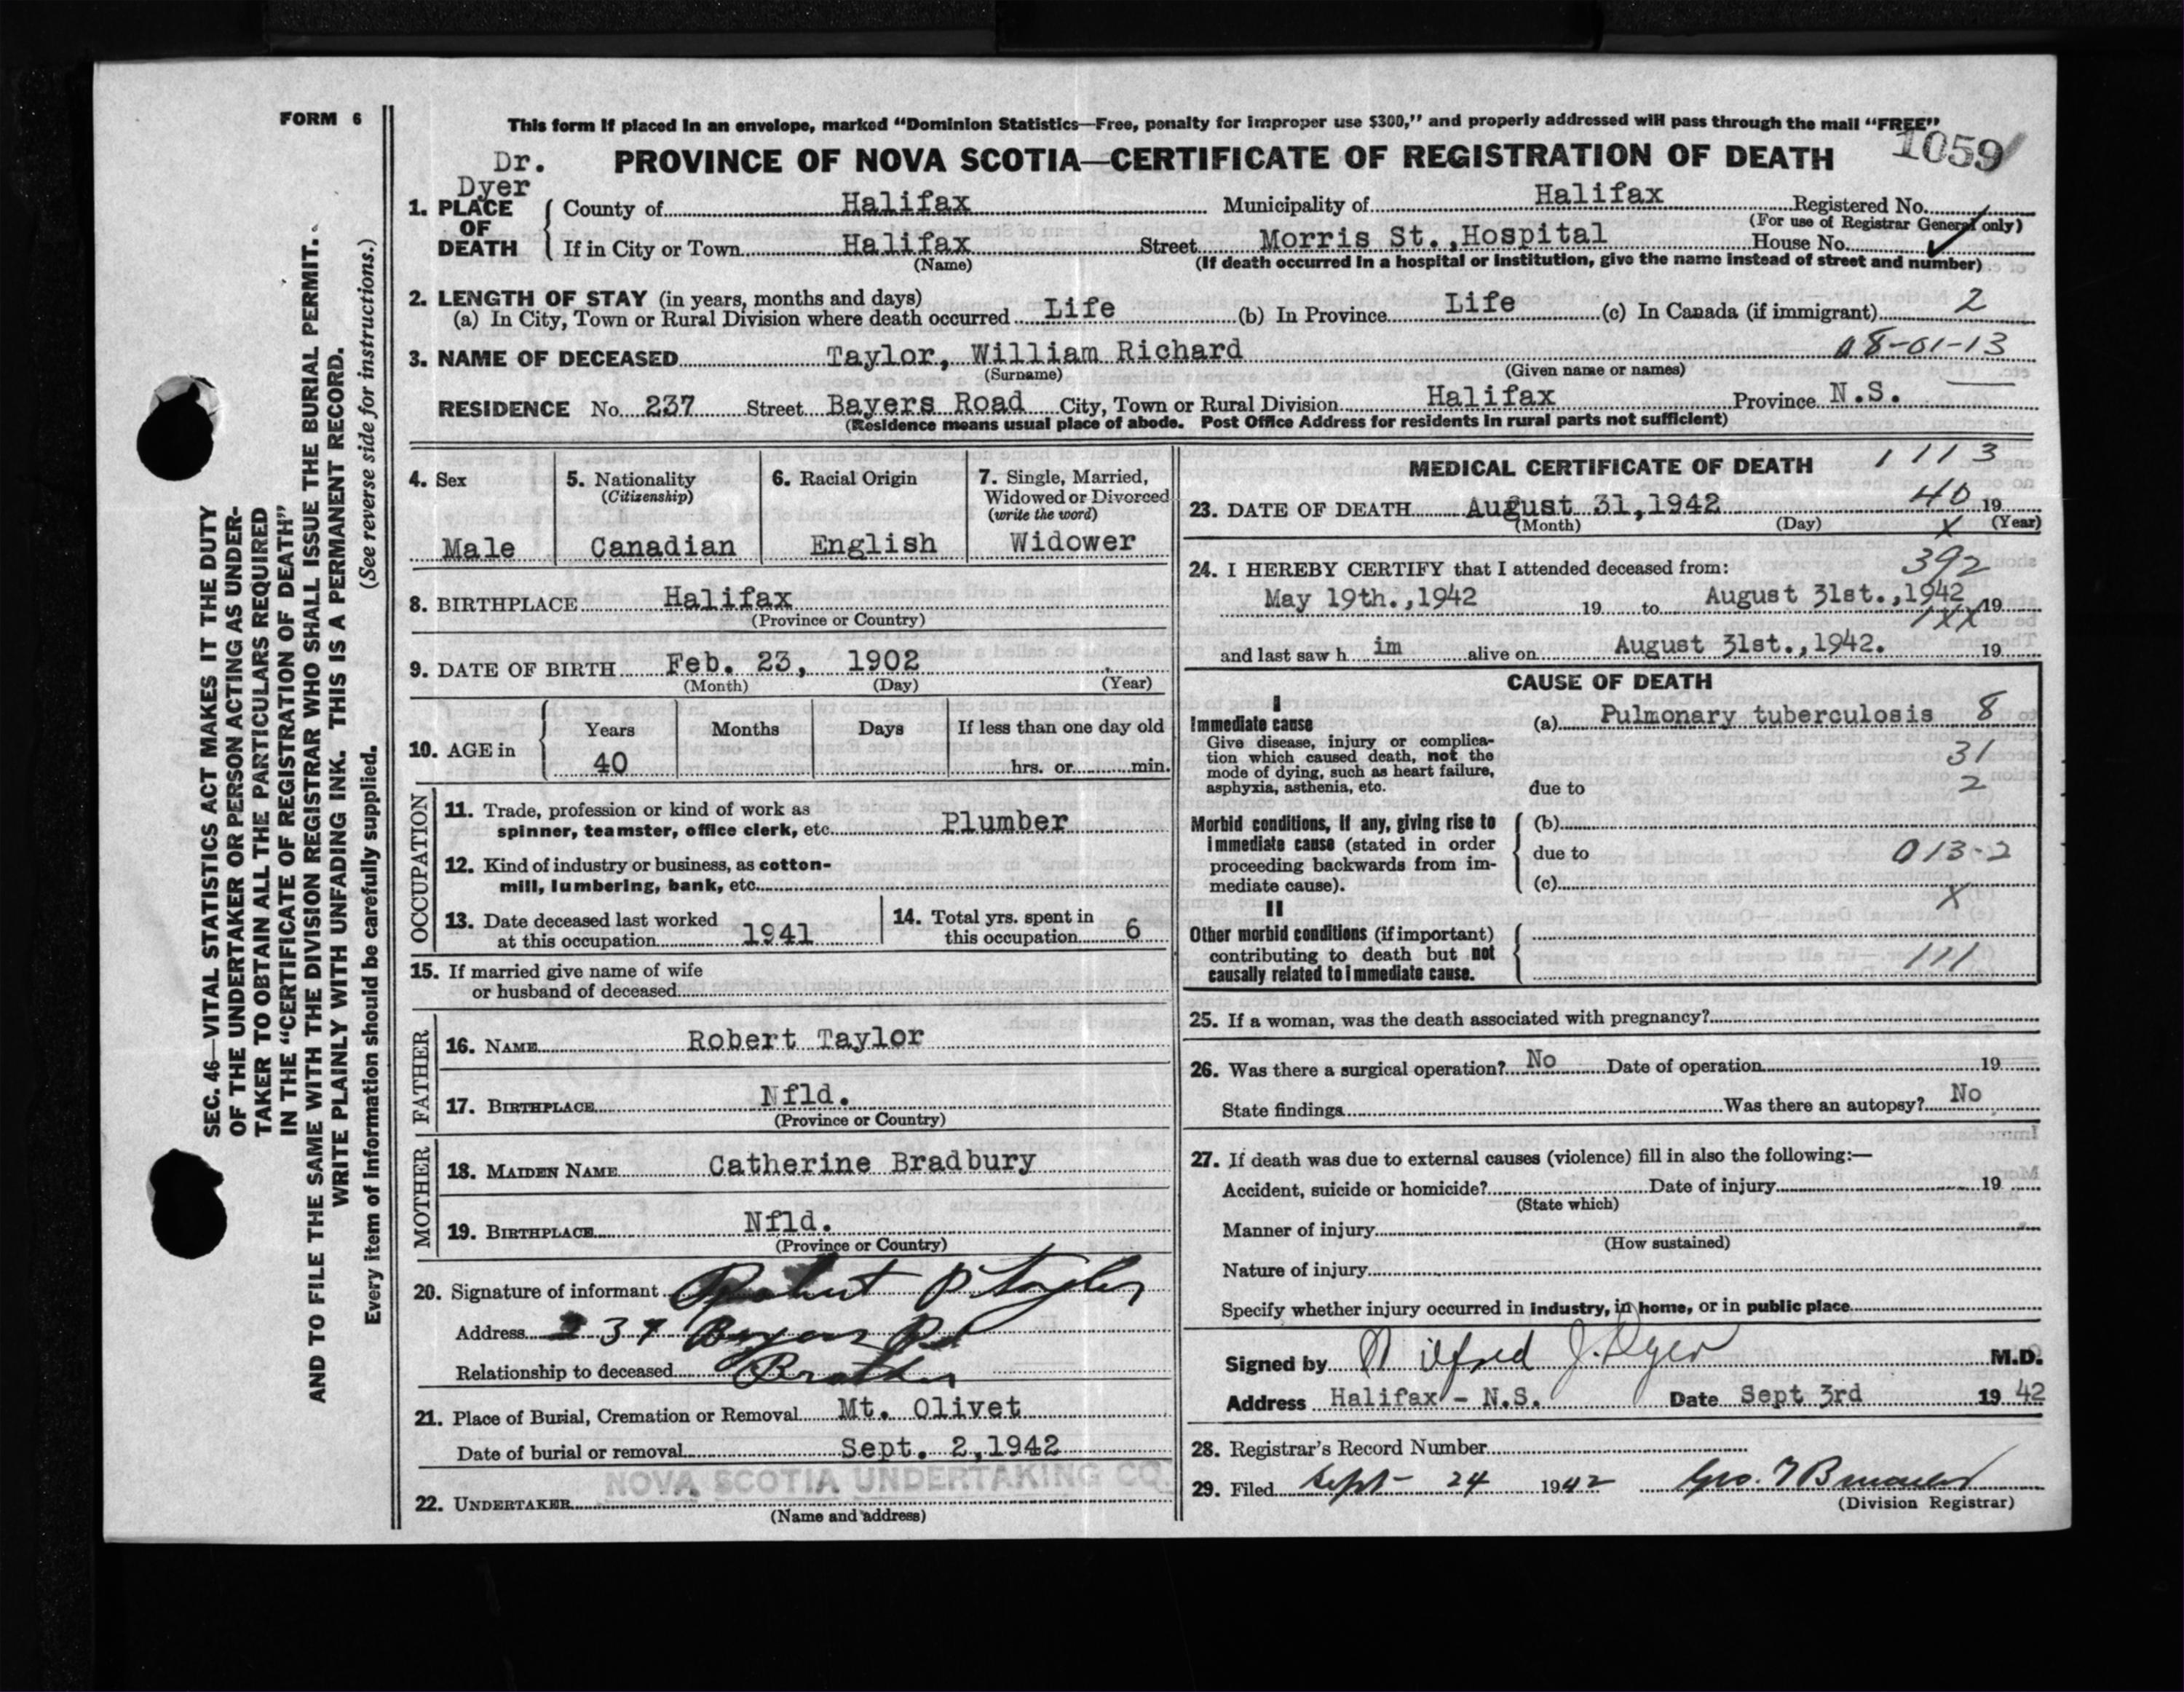 FORM 6
This form if placed in an envelope, marked “Dominion Statistics—Free, penalty for improper use $300,” and properly addressed will pass through the mail “FREE”
1059
Dr. Dyer
PROVINCE OF NOVA SCOTIA—CERTIFICATE OF REGISTRATION OF DEATH
1. PLACE OF DEATH
County of Halifax Municipality of Halifax Registered No.
(For use of Registrar General only)
If in City or Town Halifax Street Morris St., Hospital House No.
(Name) (If death occurred in a hospital or institution, give the name instead of street and number)
2. LENGTH OF STAY (in years, months and days)
(a) In City, Town or Rural Division where death occurred Life (b) In Province Life (c) In Canada (if immigrant) 2
3. NAME OF DECEASED Taylor, William Richard 08-01-13
(Surname) (Given name or names)
RESIDENCE No. 237 Street Bayers Road City, Town or Rural Division Halifax Province N.S.
(Residence means usual place of abode. Post Office Address for residents in rural parts not sufficient)
4. Sex
Male
5. Nationality
(Citizenship)
Canadian
6. Racial Origin
English
7. Single, Married,
Widowed or Divorced
(write the word)
Widower
8. BIRTHPLACE Halifax
(Province or Country)
9. DATE OF BIRTH Feb. 23, 1902
(Month) (Day) (Year)
10. AGE in
Years Months Days If less than one day old
40 hrs. or min.
OCCUPATION
11. Trade, profession or kind of work as
spinner, teamster, office clerk, etc. Plumber
12. Kind of industry or business, as cotton-
mill, lumbering, bank, etc.
13. Date deceased last worked
at this occupation 1941
14. Total yrs. spent in
this occupation 6
15. If married give name of wife
or husband of deceased
FATHER
16. NAME Robert Taylor
17. BIRTHPLACE Nfld.
(Province or Country)
MOTHER
18. MAIDEN NAME Catherine Bradbury
19. BIRTHPLACE Nfld.
(Province or Country)
20. Signature of informant Robert P Taylor
Address 237 Bayers Rd
Relationship to deceased Brother
21. Place of Burial, Cremation or Removal Mt. Olivet
Date of burial or removal Sept. 2, 1942
NOVA SCOTIA UNDERTAKING CO.
22. UNDERTAKER
(Name and address)
MEDICAL CERTIFICATE OF DEATH 1113
23. DATE OF DEATH August 31, 1942 40 19
(Month) (Day) X (Year)
24. I HEREBY CERTIFY that I attended deceased from: 392
May 19th., 1942 19 to August 31st., 1942 19
1XX
and last saw h im alive on August 31st., 1942. 19
CAUSE OF DEATH
I
Immediate cause (a) Pulmonary tuberculosis 8
Give disease, injury or complica-
tion which caused death, not the
31
mode of dying, such as heart failure,
asphyxia, asthenia, etc. due to 2
Morbid conditions, if any, giving rise to (b)
immediate cause (stated in order due to 013-2
proceeding backwards from im-
mediate cause). (c)
X
II
Other morbid conditions (if important)
contributing to death but not 111
causally related to immediate cause.
25. If a woman, was the death associated with pregnancy?
26. Was there a surgical operation? No Date of operation 19
State findings Was there an autopsy? No
27. If death was due to external causes (violence) fill in also the following:—
Accident, suicide or homicide? Date of injury 19
(State which)
Manner of injury
(How sustained)
Nature of injury
Specify whether injury occurred in industry, in home, or in public place
Signed by Wilfred J. Dyer M.D.
Address Halifax - N.S. Date Sept 3rd 1942
28. Registrar's Record Number
29. Filed Sept- 24 1942 Geo. T
(Division Registrar)
SEC. 46—VITAL STATISTICS ACT MAKES IT THE DUTY
OF THE UNDERTAKER OR PERSON ACTING AS UNDER-
TAKER TO OBTAIN ALL THE PARTICULARS REQUIRED
IN THE “CERTIFICATE OF REGISTRATION OF DEATH”
AND TO FILE THE SAME WITH THE DIVISION REGISTRAR WHO SHALL ISSUE THE BURIAL PERMIT.
WRITE PLAINLY WITH UNFADING INK. THIS IS A PERMANENT RECORD.
Every item of information should be carefully supplied. (See reverse side for instructions.)